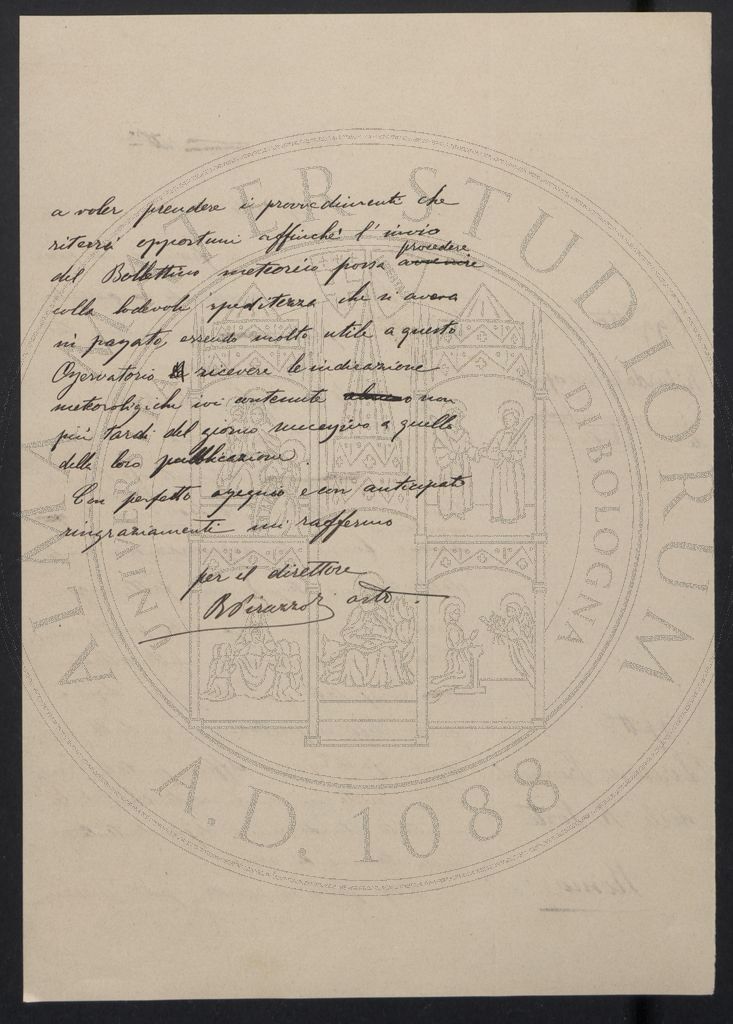 a voler prendere i provvedimenti che
riterrà opportuni affinché l'invio
del Bollettino meteorico possa avvenire procedere
colla lodevole speditezza che si aveva
in passato, essendo molto utile a questo
Osservatorio ricevere le indicazione
meteorologiche ivi contenute non
più tardi del giorno successivo a quello
della loro pubblicazione.
Con perfetto ossequio e con anticipati
ringraziamenti mi raffermo
per il direttore
R Pirazzoli astr.
ALMA MATER STUDIORUM
UNIVERSITÀ DI BOLOGNA
A.D. 1088